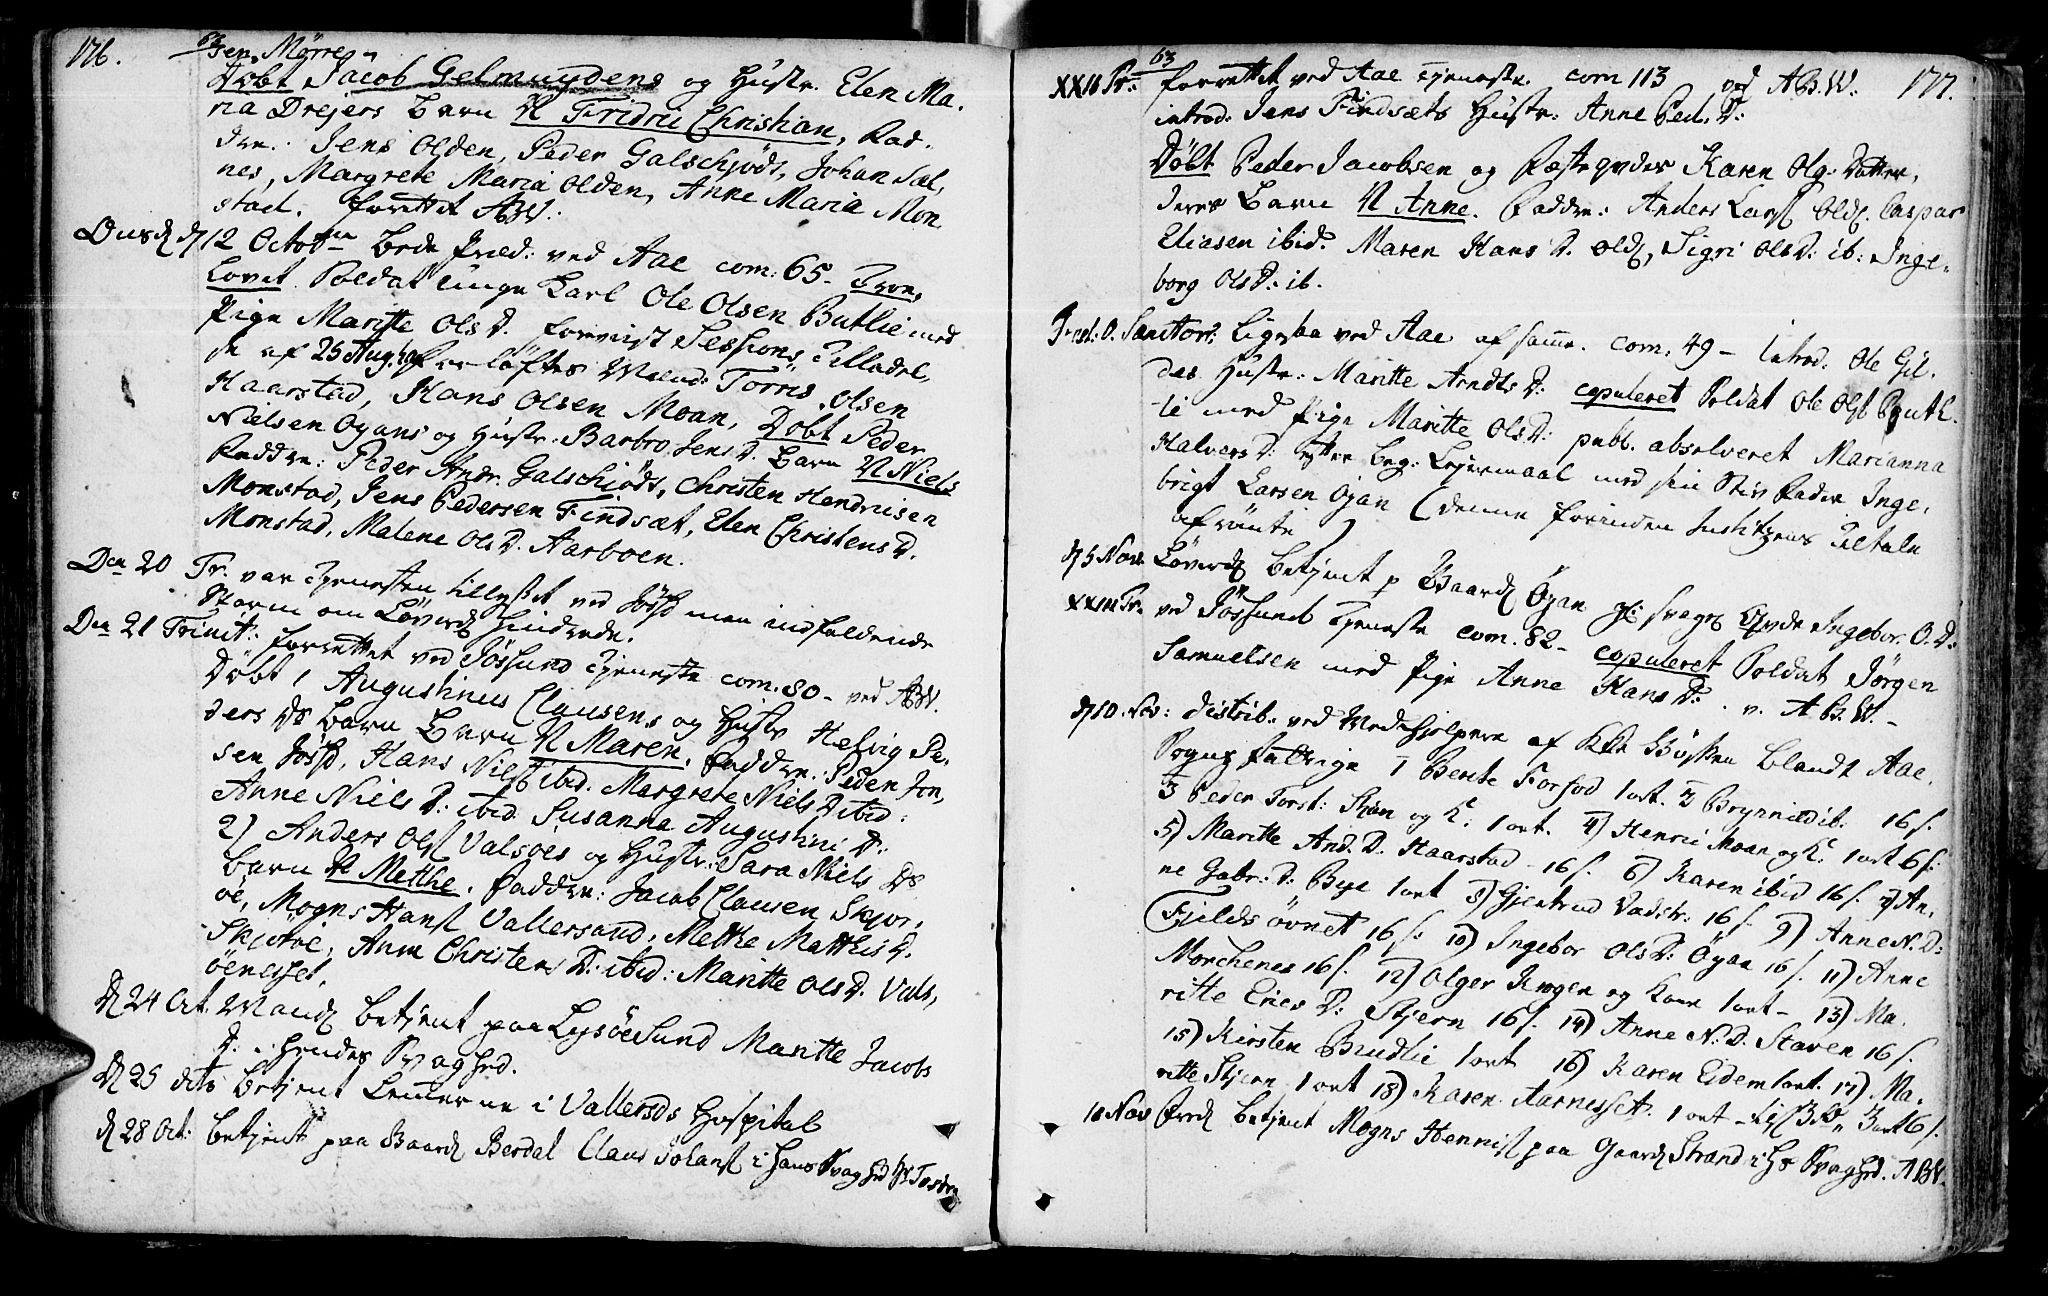 176.
63
sen, Mørre -
Døbt Jacob Gelmuydens og Hustr. Elen Ma.
ria Drejers Barn N Fridric Christian, Fad.
dre. Jens Olden, Peder Galschjødt, Johan Sæl,
nes, Margrete Maria Olden, Anne Maria Mon
stad. forettet ABW:
Onsd d 12 Octobr Bede Præd: ved Aae com: 65 - Trou,
Lovet Soldat unge Karl Ole Olsen Butlie med
Pige Maritte Ols D. forevist Sessions Tilladel,
se af 25 Aug. Forløftes Mænd: Torris Olsen
Haarstad, Hans Olsen Moan, Døbt Peder
Nielsen Oyans og Hustr: Barbro Jens D. Barn N Niels
Faddre: Peder Andr. Galschiödt, Christen Hendricsen
Monstad, Jens Pedersen Findsæt, Elen Christens D.
Monstad, Malene Ols D. Aarboen.
Den 20 Tr. var Tjenesten tillyst ved Jøss. men indfaldende
Storm om Løverd hindrede.
Den 21 Trinit: forrettet ved Jössund Tjeneste com. 80 - ved ABW.
Døbt 1 Augustinus Clausens og Hustr Helvig Pe,
ders Ds Barn Barn N Maren. Faddre: Peder Jon,
sen Jøss, Hans Nils. ibid. Margrete Niels D ibid:
Anne Niels D: ibid. Susanna Augustini D:
2) Anders Ols. Valsøes og Hustr: Sara Niels Ds
Barn N Methe. Faddre: Jacob Clausen Skjor,
öe, Mogns Hans. Vallersund, Methe Matthis D.
Skjoröe, Anne Christens D: ibid: Maritte Ols D. Vals,
öenesset.
D 24 Oct. Mand betjent paa Lysöesund Maritte Jacobs
D: i hendes Svaghed.
D 25 dito betjent Lemmerne i Vallersds Hospital
d 28 Oct: betjent paa Gaard Berdal Claus Johans. i hans Svaghed
63
177.
XXII Tr: forrettet ved Aae Tjeneste. com 113 ved A B. W:
introd: Jens Findsæts Hustr: Anne Ped. D:
Döbt Peder Jacobsen og Fæsteqvdes Karen Ols Datter,
deres Barn N Anne. Faddre: Anders Lars. Old. Caspar
Eliasen ibid. Maren Hans D. Old, Sigri Ols D: ib: Inge,
borg Ols D: ib.
Fest. O. Sanctor: Ligesaa ved Aae af samme. com. 49 - Introd: Ole Gil.
des Hustr: Maritte Arndts D: copuleret Soldat Ole Ols. Buthl.
li med Pige Maritte Ols D: publ. absolveret Marianna
Halvers D: efter beg: Lejermaal med sin Stiv Fader Inge,
brigt Larsen Öjan (denne forinden Justitzens Tiltale
afsonte)
d 3 Nov. Löverd betjent p Gaard Öyan svage Ingebor. O. D:
XXIII Tr. ved Jössund Tjeneste com. 82 - copuleret Soldat Jörgen
Samuelsen med Pige Anne Hans D: . v. A. B. W. -
d 10. Nov: distrib: ved Medhjelpere af Bössen blandt Aae.
Sogns fattige 1 Berite Forsod 1 ort. 2 Brynnild ib. 16 s.
3 Peder Torst: Skan og K: 1 ort. 4) Henric Moan og K. 1 ort 6 s:
5) Maritte And. D. Haarstad - 16 s. 6) Karen ibid 16 s. 7) An,
ne Gabr: D: Bye 1 ort 8) Gjertrud Vadstr: 16 s. 9) Anne N. D:
Fields övnet 16 s. 10) Ingebor Ols D: Öyan 16 s. 11) Anne
Morchenes 16 s. 12) Olger Krogen og Kone 1 ort - 13) Ma,
ritte Erics D: Stjern 16 s. 14) Anne N. D. Staven 16 s.
15) Kirsten Brudlie 1 ort 16) Karen Eidem 1 ort. 17) Ma,
ritte Stjern 1 ort 18) Karen Aarnesset. 1 ort - 3 ort 16 s.
10 Nov betjent Mogns Hennis. paa Gaard Strand i Hs Svaghed. A BW.